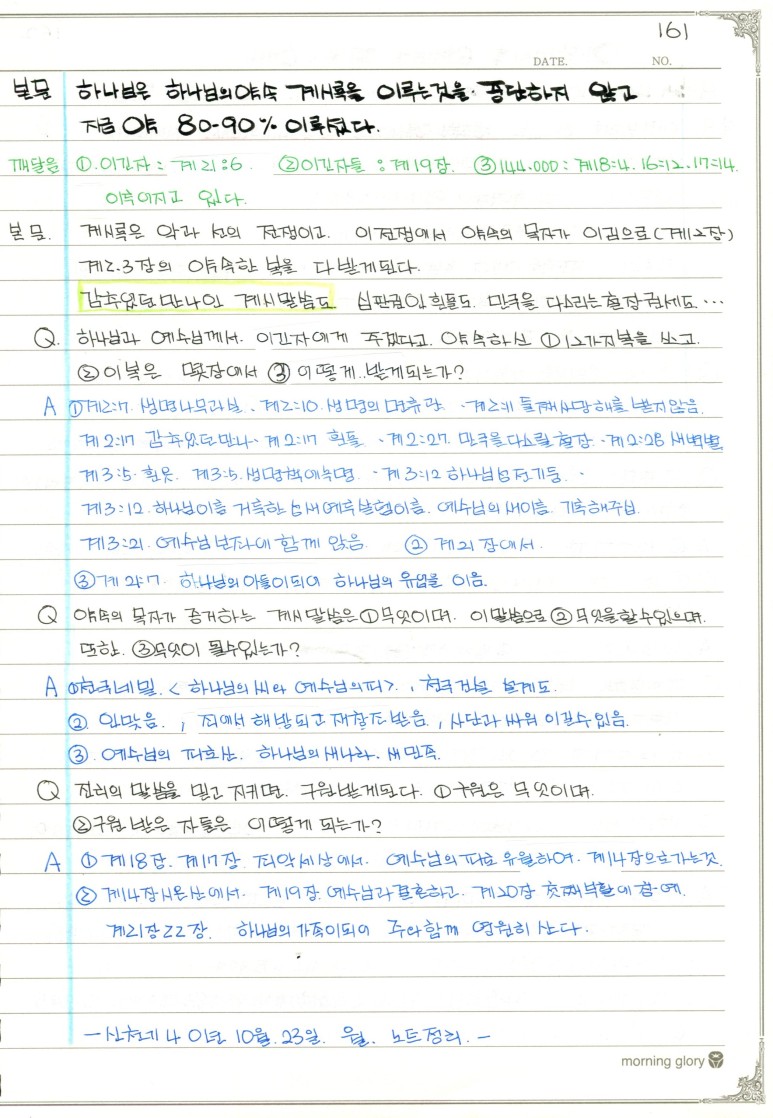 161
DATE. NO.
본문 하나님은 하나님의 약속 계시록을 이루는것을 중단하지 않고
지금 약 80-90% 이루셨다.
깨달음 ①. 이긴자 : 계21:6. ②이긴자들 : 계19장. ③144.000 : 계18=4. 16=12. 17=14.
이루어지고 있다.
본문. 계시록은 악과 선의 전쟁이고. 이전쟁에서 약속의 목자가 이김으로(계12장)
계2.3장의 약속한 복을 다받게된다.
감추었던만나인 계시말씀도 심판권인 흰돌도. 만국을 다스리는 철장권세도…
Q. 하나님과 예수님께서. 이긴자에게 주겠다고. 약속하신 ①12가지복을 쓰고.
②이복은 몇장에서 ③ 어떻게..받게되는가?
A ①계2:7. 생명나무과실. 계2:10. 생명의 면류관. ·계2:11 둘째사망해를 받지않음.
계2:17 감추었던만나. 계2:17 흰돌. ·계2:27. 만국을다스릴철장. ·계2:28 새벽별
계3:5. 흰옷. 계3:5. 생명책에녹명. ·계3:12 하나님성전기둥.
계3:12. 하나님이름 거룩한성새예루살렘이름. 예수님의 새이름. 기록해주심.
계3:21. 예수님보좌에 함께 앉음. ② 계21장에서.
③계21:7. 하나님의아들이되어 하나님의 유업을 이음.
Q 약속의 목자가 증거하는 계시말씀은①무엇이며. 이말씀으로②무엇을할수있으며.
또한. ③무엇이 될수있는가?
A ①천국비밀. < 하나님의 씨와 예수님의피>. , 천국건설 설계도.
② 인맞음. , 죄에서 해방되고 재창조받음 , 사단과 싸워 이길수있음.
③. 예수님의 피로산. 하나님의새나라. 새민족.
Q 진리의 말씀을 믿고 지키면. 구원받게된다. ①구원은 무엇이며.
②구원 받은 자들은 어떻게 되는가?
A ①계18장. 계17장 죄악세상에서. 예수님의피로 유월하여. 계14장으로가는것.
② 계14장시온산에서. 계19장. 예수님과결혼하고. 계20장 첫째부활에참여.
계21장22장. 하나님의 가족이되어 주와함께 영원히 산다.
-신천기40년 10월.23일. 월. 노트정리.-
morning glory